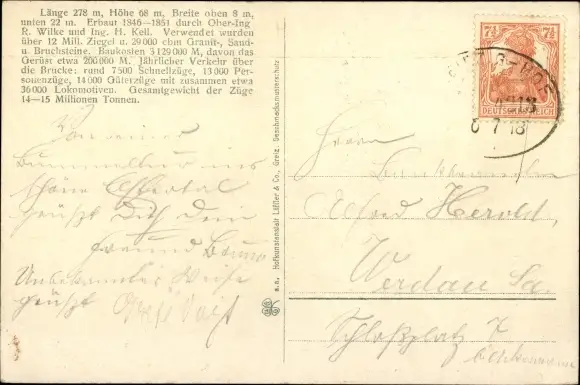 Länge 278 m, Höhe 68 m, Breite oben 8 m,
unten 22 m. Erbaut 1846—1851 durch Ober-Ing
R. Wilke und Ing. H. Kell. Verwendet wurden
über 12 Mill. Ziegel u. 29000 cbm Granit-, Sand-
u. Bruchsteine. Baukosten 3129000 M, davon das
Gerüst etwa 200000 M. Jährlicher Verkehr über
die Brücke: rund 7500 Schnellzüge, 13000 Per-
sonenzüge, 14000 Güterzüge mit zusammen etwa
36000 Lokomotiven. Gesamtgewicht der Züge
14—15 Millionen Tonnen.
Von einer
Bummeltour ins
schöne Elstertal
grüßt Dich Dein
Freund
Unbekannter Weise
grüßt
Hofkunstanstalt Löffler & Co., Greiz. Geschmacksmusterschutz
7½ 7½
DEUTSCHES REICH
7 18
Herrn
Alfred Herold,
Werdau Sa.
Schloßplatz 7